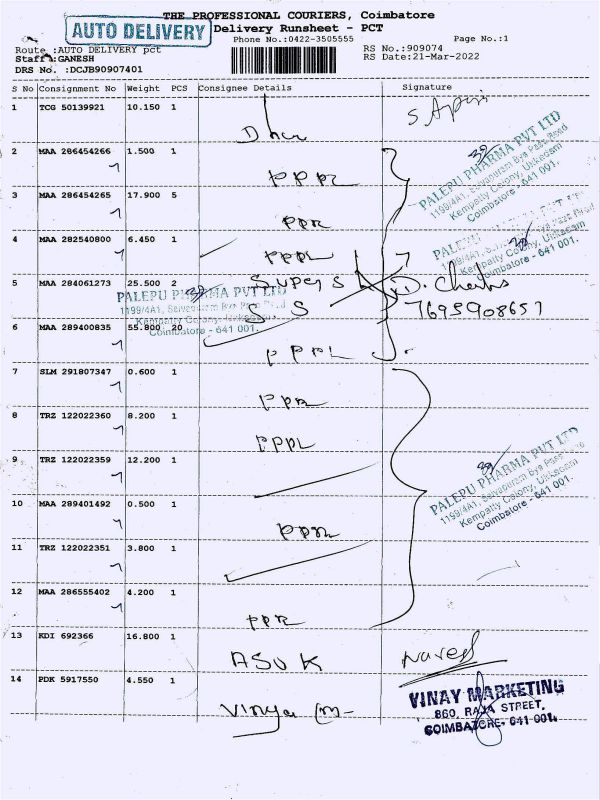 THE PROFESSIONAL COURIERS, Coimbatore
AUTO DELIVERY
Delivery Runsheet - PCT
Phone No.:0422-3505555
Page No.:1
Route :AUTO DELIVERY pct
RS No.:909074
Staff :GANESH
RS Date:21-Mar-2022
DRS No. :DCJB90907401
S No Consignment No Weight PCS Consignee Details Signature
1 TCG 50139921 10.150 1
2 MAA 286454266 1.500 1
PPPL
PALEPU PHARMA PVT LTD
1199/4A1, Seivapuram Bye Pass Road
Kempatty Colony, Ukkadam
Coimbatore - 641 001.
3 MAA 286454265 17.900 5
PPPL
PALEPU
Kempatty Colony, Ukkadam
Coimbatore - 641 001.
4 MAA 282540800 6.450 1
PPPL
5 MAA 284061273 25.500 2
Supers
S S
7695908657
PALEPU PHARMA PVT LTD
1199/4A1,
Kempatty Colony, Ukkadam
Coimbatore - 641 001.
6 MAA 289400835 55.800 20
PPPL
7 SLM 291807347 0.600 1
PPPL
8 TRZ 122022360 8.200 1
PPPL
9 TRZ 122022359 12.200 1
PALEPU PHARMA PVT LTD
1199/4A1, Seivapuram Bye Pass Road
Kempatty Colony, Ukkadam
Coimbatore - 641 001.
10 MAA 289401492 0.500 1
PPPL
11 TRZ 122022351 3.800 1
12 MAA 286555402 4.200 1
PPPL
13 KDI 692366 16.800 1
ASOK
Naresh
14 PDK 5917550 4.550 1
VINAY MARKETING
860, RAJA STREET,
COIMBATORE- 641 001.